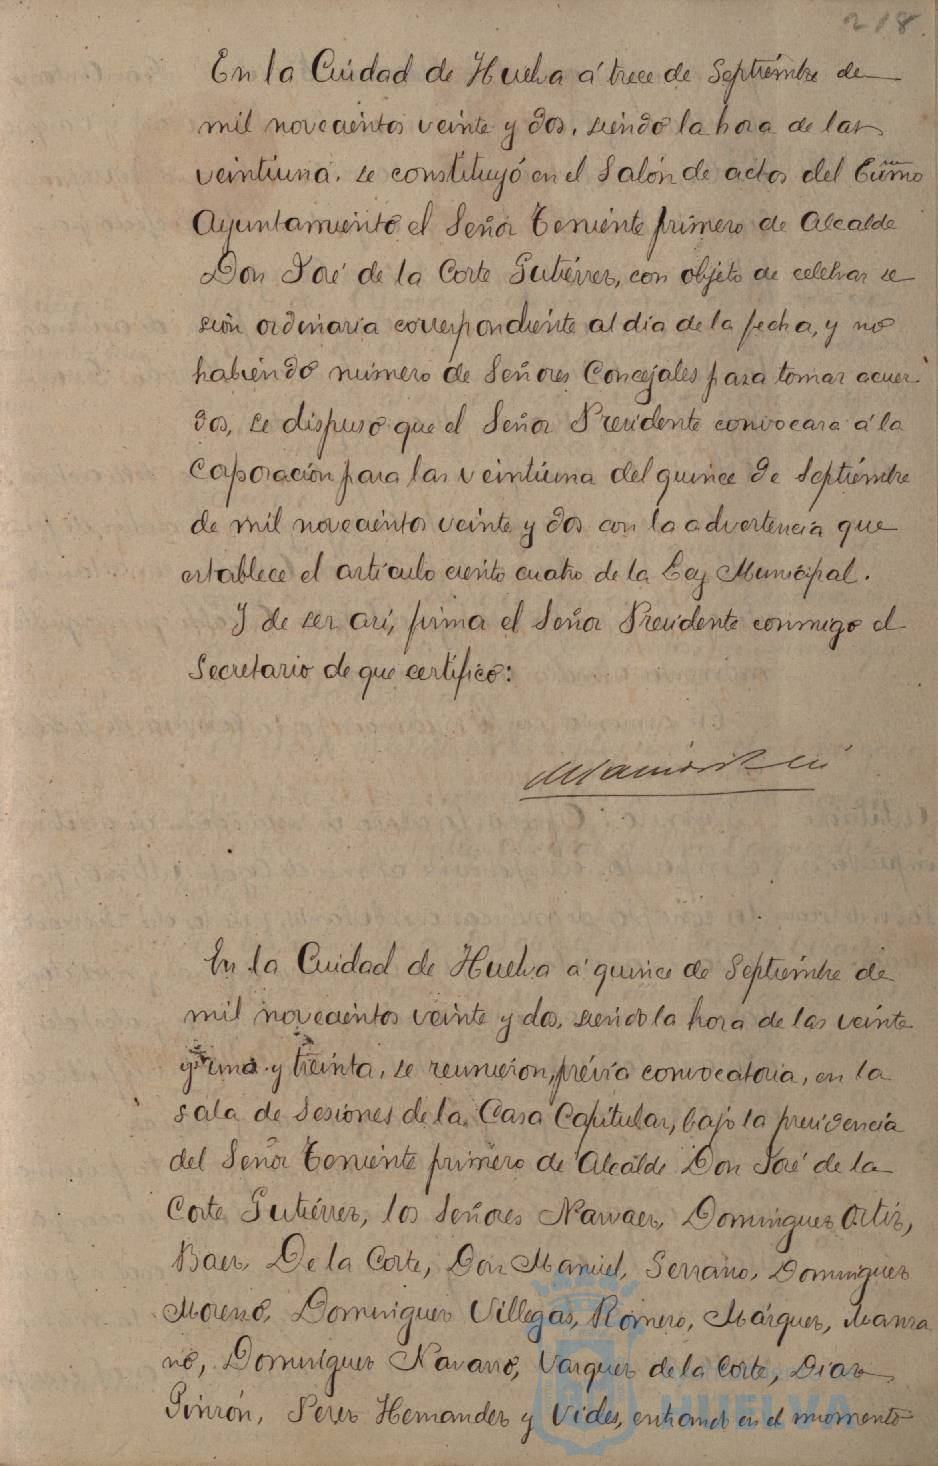 218.
En la Cuidad de Huelva á trece de Septiembre de
mil novecientos veinte y dos, siendo la hora de las
veintiuna, se constituyó en el Salón de actos del Excmo
Ayuntamiento el Señor Teniente primero de Alcalde
Don José de la Corte Gutiérrez, con objeto de celebrar se
sión ordinaria correspondiente al dia de la fecha, y no
habiendo número de Señores Concejales para tomar acuer
dos, se dispuso que el Señor Presidente convocara á la
Corporación para las veintiuna del quince de Septiembre
de mil novecientos veinte y dos con la advertencia que
establece el artículo ciento cuatro de la Ley Municipal.
Y de ser asi, firma el Señor Presidente conmigo el
Secretario de que certifico:
En la Cuidad de Huelva á quince de Septiembre de
mil novecientos veinte y dos, siendo la hora de las veinte
y una y treinta, se reunieron, prévia convocatoria, en la
sala de Sesiones de la Casa Capitular, bajo la presidencia
del Señor Teniente primero de Alcalde Don José de la
Corte Gutiérrez, los Señores Narvaez, Dominguez Ortiz,
Baez, De la Corte, Don Manuel, Serrano, Dominguez
Moreno, Dominguez Villegas, Romero, Márquez, Manza
no, Dominguez Navarro, Vazquez de la Corte, Diaz
Pinzón, Perez Hernandez y Vides, entrando en el momento
HUELVA